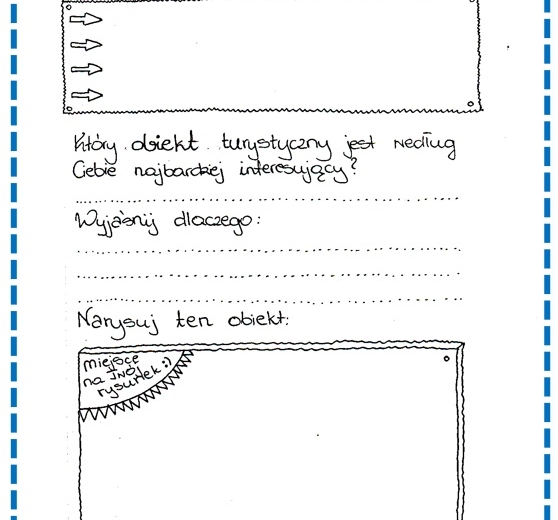 Który obiekt turystyczny jest według
Ciebie najbardziej interesujący?
Wyjaśnij dlaczego:
Narysuj ten obiekt:
miejsce
na TWÓJ
rysunek :)